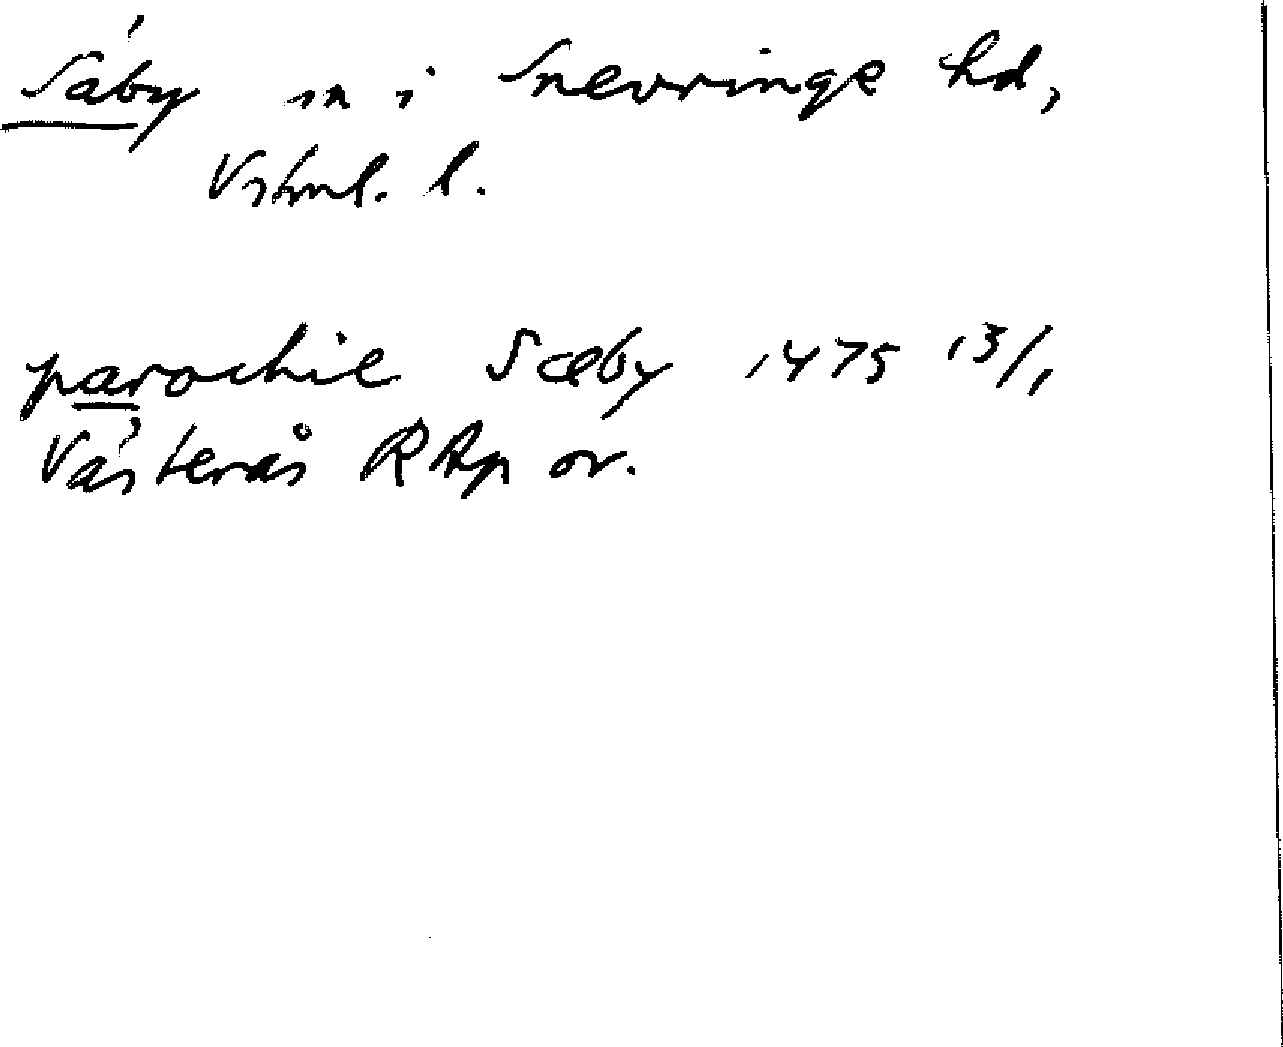 Säby sn i Snevringe hd,
Vstml. l.
parochie Sæby 1475 13/1
Västerås RAp or.